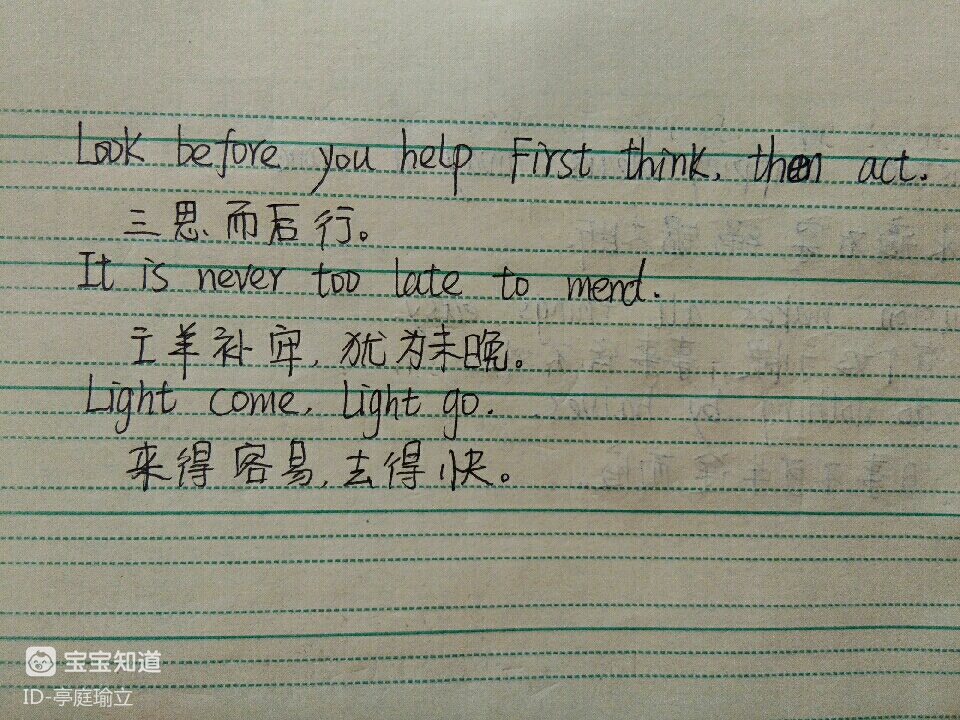 Look before you help First think, then act.
三思而后行。
It is never too late to mend.
亡羊补牢,犹为未晚。
Light come, Light go.
来得容易,去得快。
宝宝知道
ID-亭庭瑜立